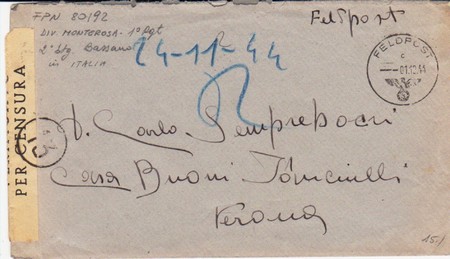 FPN 80192
DIV. MONTEROSA - 1° Rgt
1° btg. Bassano
in ITALIA
Feldpost
24-11-44
R
FELDPOST
c
01.12.44
PER CENSURA
A. Carlo Sempreboni
Casa Buoni Fanciulli
Verona
15/